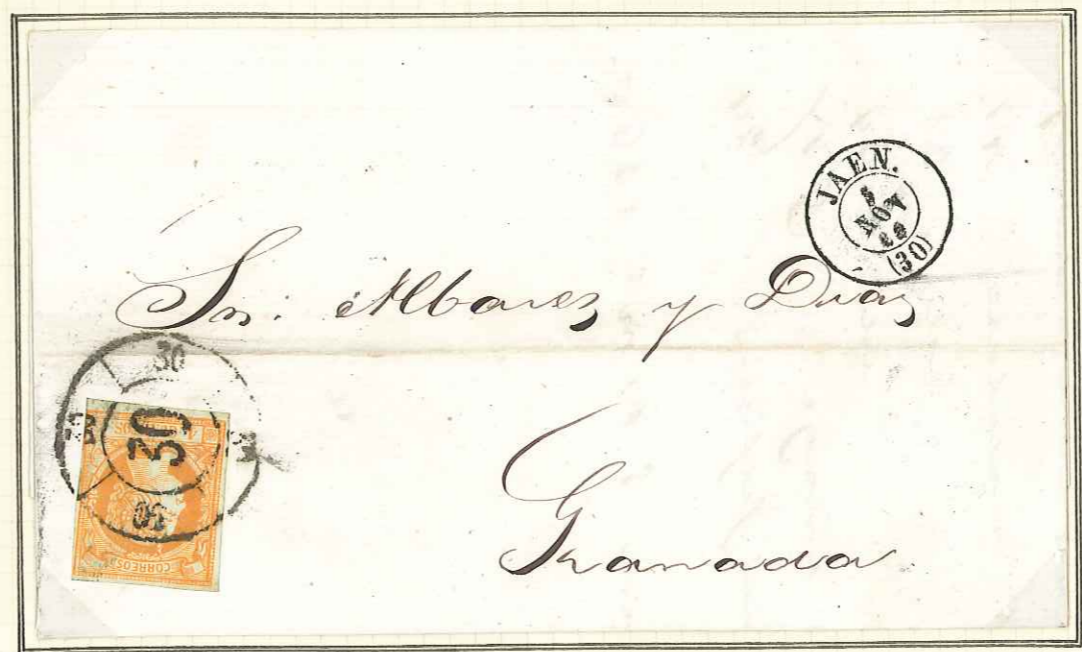 JAEN.
NOV
(30)
Sres. Albarez y Diaz
Granada
30
30
30
CORREOS